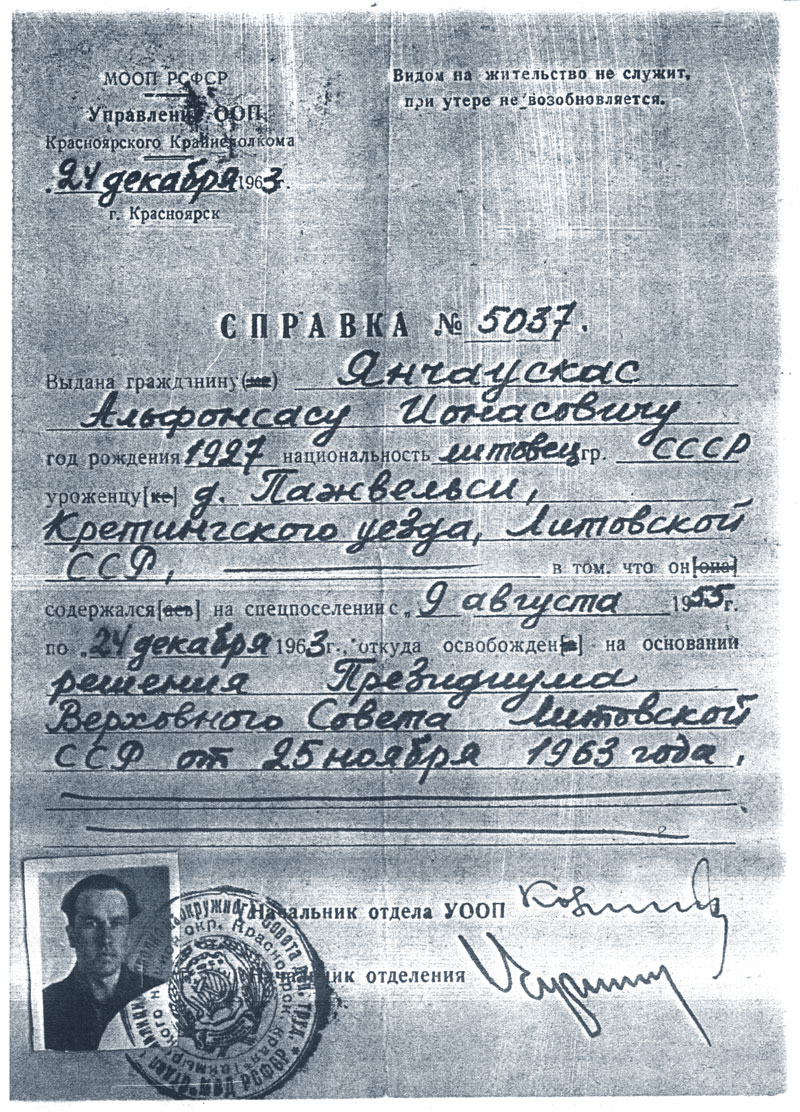 МООП РСФСР
Управление ООП
Красноярского Крайисполкома
"24 декабря 1963г.
г. Красноярск
Видом на жительство не служит,
при утере не возобновляется.
СПРАВКА № 5037.
Выдана гражданину(ке) Янчаускас
Альфонсасу Ионасовичу
год рождения 1927 национальность литовец гр. СССР
уроженцу[ке] д. Пажвельси,
Кретингского уезда, Литовской
ССР, в том, что он[она]
содержался[ась] на спецпоселении с „9 августа 1955г.
по „24 декабря 1963г., откуда освобожден[а] на основании
решения Президиума
Верховного Совета Литовской
ССР от 25 ноября 1963 года.
Начальник отдела УООП
Начальник отделения
окружного Совета деп. труд.
окр. Красноярск. края
МВД РСФСР